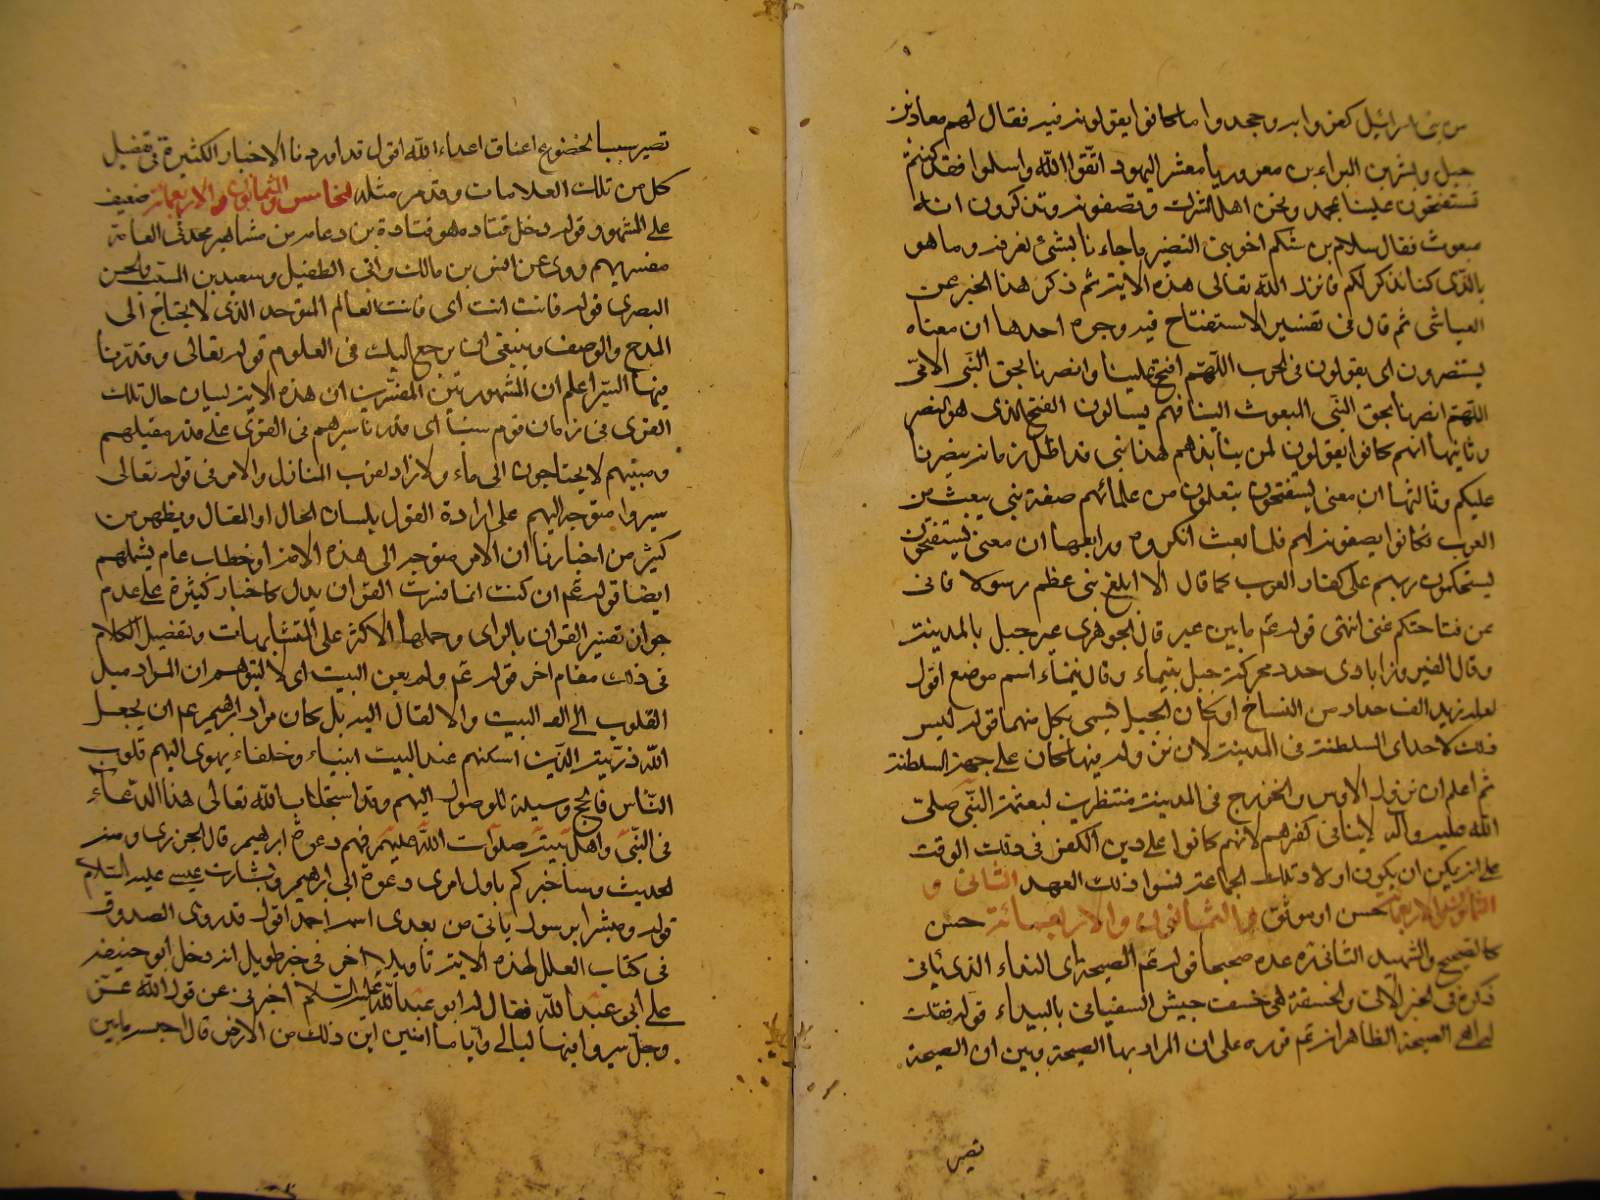 من بني اسرائيل كفروا به وجحدوا ما كانوا يقولونه فيه فقال لهم معاذ بن
جبل وبشر بن البراء بن معرور يا معشر اليهود اتقوا الله واسلموا فقد كنتم
تستفتحون علينا بمحمد ونحن اهل الشرك وتصفونه وتذكرون انه
مبعوث فقال سلام بن مشكم اخو بني النضير ما جاءنا بشئ نعرفه وما هو
بالذي كنا نذكر لكم فانزل الله تعالى هذه الاية ثم ذكر هذا الخبر عن
العياشي ثم قال في تفسير الاستفتاح فيه وجوه احدها ان معناه
يستنصرون اي يقولون في الحرب اللهم افتح علينا وانصرنا بحق النبي الامي
اللهم انصرنا بحق النبي المبعوث الينا فهم يسالون الفتح الذي هو النصر
وثانيها انهم كانوا يقولون لمن ينابذهم هذا نبي قد اظل زمانه ينصرنا
عليكم وثالثها ان معنى يستفتحون يتعلمون من علمائهم صفة نبي يبعث من
العرب فكانوا يصفونه لهم فلما بعث انكروه ورابعها ان معنى يستفتحون
يستحكمون ربهم على كفار العرب كما قال الا ابلغ بني عظم رسولا فاني
عن فتاحتكم غني انتهى قوله عم ما بين عير قال الجوهري عير جبل بالمدينة
وقال الفيروزابادي حدد محركة جبل بتيماء وقال تيماء اسم موضع اقول
لعله زيد الف حداد من النساخ او كان الجبل يسمى بكل منهما قوله ليس
ذلك لاحد اي السلطنة في المدينة لان نزوله فيها كان على جهة السلطنة
ثم اعلم ان نزول الاوس والخزرج في المدينة منتظرين لبعثة النبي صلى
الله عليه واله لا ينافي كفرهم لانهم كانوا على دين الكفر في ذلك الوقت
على انه يمكن ان يكون اولاد تلك الجماعة نسوا ذلك العهد الثاني و
الثمانون والاربعمائة حسن او موثق الثمانون والاربعمائة حسن
كالصحيح والشهيد الثاني ره عده صحيحا قوله عم الصيحة اي النداء الذي ياتي
ذكره في الخبر الآتي والخسفة هي خسف جيش السفياني بالبيداء قوله فقلت
له اهي الصيحة الظاهر انه عم قرره على ان المراد بها الصيحة وبين ان الصيحة
تصير
تصير سببا لخضوع اعناق اعداء الله اقول قد اوردنا الاخبار الكثيرة في تفصيل
كل من تلك العلامات وقد مر مثله الخامس والثمانون والاربعمائة ضعيف
على المشهور قوله دخل قتادة هو قتادة بن دعامه من مشاهير محدثي العامة
مفسريهم روى عن انس بن مالك وابي الطفيل وسعيد بن المسيب والحسن
البصري قوله فانت انت اي فانت العالم المتوحد الذي لا يحتاج الى
المدح والوصف وينبغي ان يرجع اليك في العلوم قوله تعالى وقدرنا
فيها السير اعلم ان المشهور بين المفسرين ان هذه الاية لبيان حال تلك
القرى في زمان قوم سبأ اي قدرنا سيرهم في القرى على قدر مقيلهم
ومبيتهم لا يحتاجون الى ماء ولا زاد لقرب المنازل والامر في قوله تعالى
سيروا متوجه اليهم على ارادة القول بلسان الحال او المقال ويظهر من
كثير من اخبارنا ان الامر متوجه الى هذه الامة او خطاب عام يشملهم
ايضا قوله عم ان كنت انما فسرت القران يدل كاخبار كثيرة على عدم
جواز تفسير القران بالراي وحملها الاكثر على المتشابهات وتفصيل الكلام
في ذلك مقام اخر قوله عم ولم يعن البيت اي لا يتوهم ان المراد ميل
القلوب الى البيت والا لقال اليه بل كان مراد ابرهيم عم ان يجعل
الله ذريته الذين اسكنهم عند البيت انبياء وخلفاء يهوى اليهم قلوب
الناس فالحج وسيلة للوصول اليهم وقد استجاب الله تعالى هذا الدعاء
في النبي واهل بيته صلوات الله عليهم فهم دعوة ابرهيم قال الجزري ومنه
الحديث وساخبركم باول امري دعوة ابي ابرهيم وبشارة عيسى عليه السلام
قوله ومبشرا برسول ياتي من بعدي اسمه احمد اقول قد روى الصدوق
في كتاب العلل لهذه الاية تاويلا اخر في خبر طويل انه دخل ابو حنيفة
على ابي عبد الله فقال له ابو عبد الله عليه السلام اخبرني عن قول الله عز
وجل سيروا فيها ليالي واياما امنين اين ذلك من الارض قال احسبه ما بين